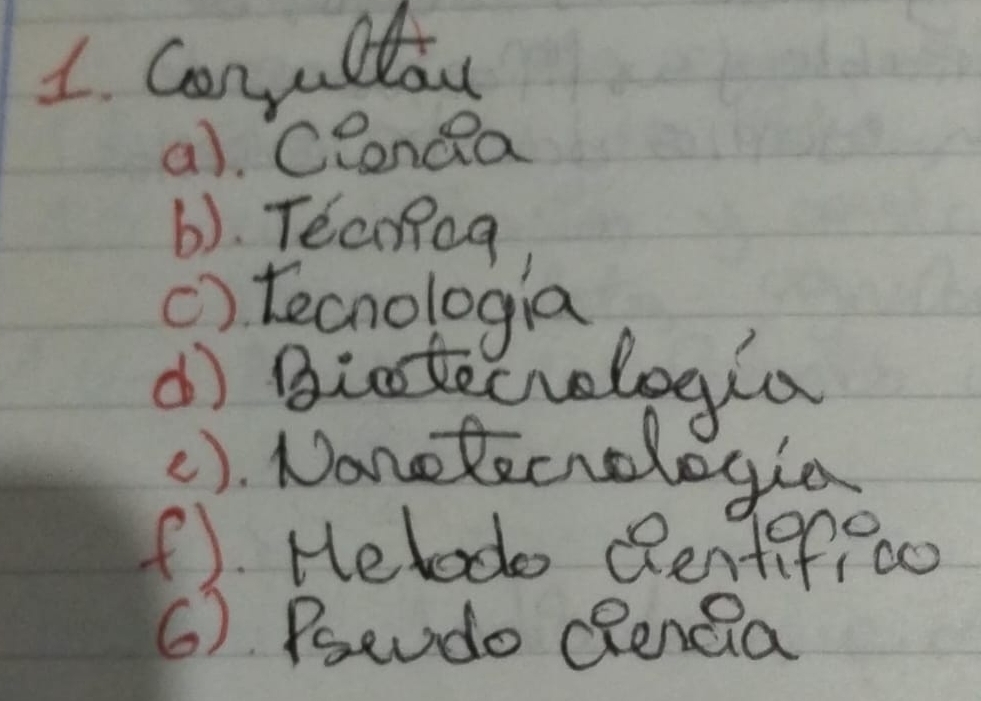 1. Consultar
a). Ciencia
b). Técnica
c). Tecnología
d) Biotecnología
e). Nanotecnología
f). Metodo cientifico
G). Pseudo ciencia